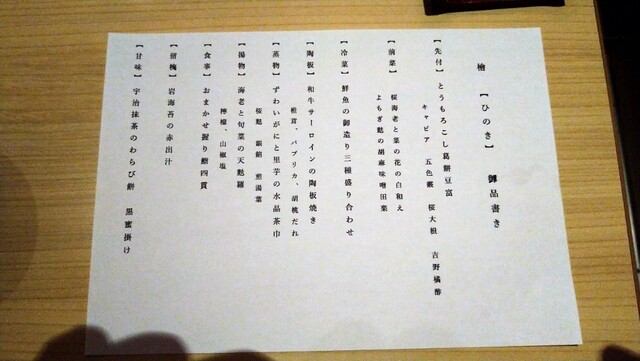 檜 【ひのき】 御品書き
【先付】とうもろこし葛餅豆富
キャビア 五色霰 桜大根 吉野橘酢
【前菜】桜海老と菜の花の白和え
よもぎ麩の胡麻味噌田楽
【冷菜】鮮魚の御造り三種盛り合わせ
【陶板】和牛サーロインの陶板焼き
椎茸、パプリカ、胡桃だれ
【蒸物】ずわいがにと里芋の水晶茶巾
桜麩 銀餡 煎湯葉
【揚物】海老と旬菜の天麩羅
檸檬、山椒塩
【食事】おまかせ握り鮨四貫
【留椀】岩海苔の赤出汁
【甘味】宇治抹茶のわらび餅 黒蜜掛け